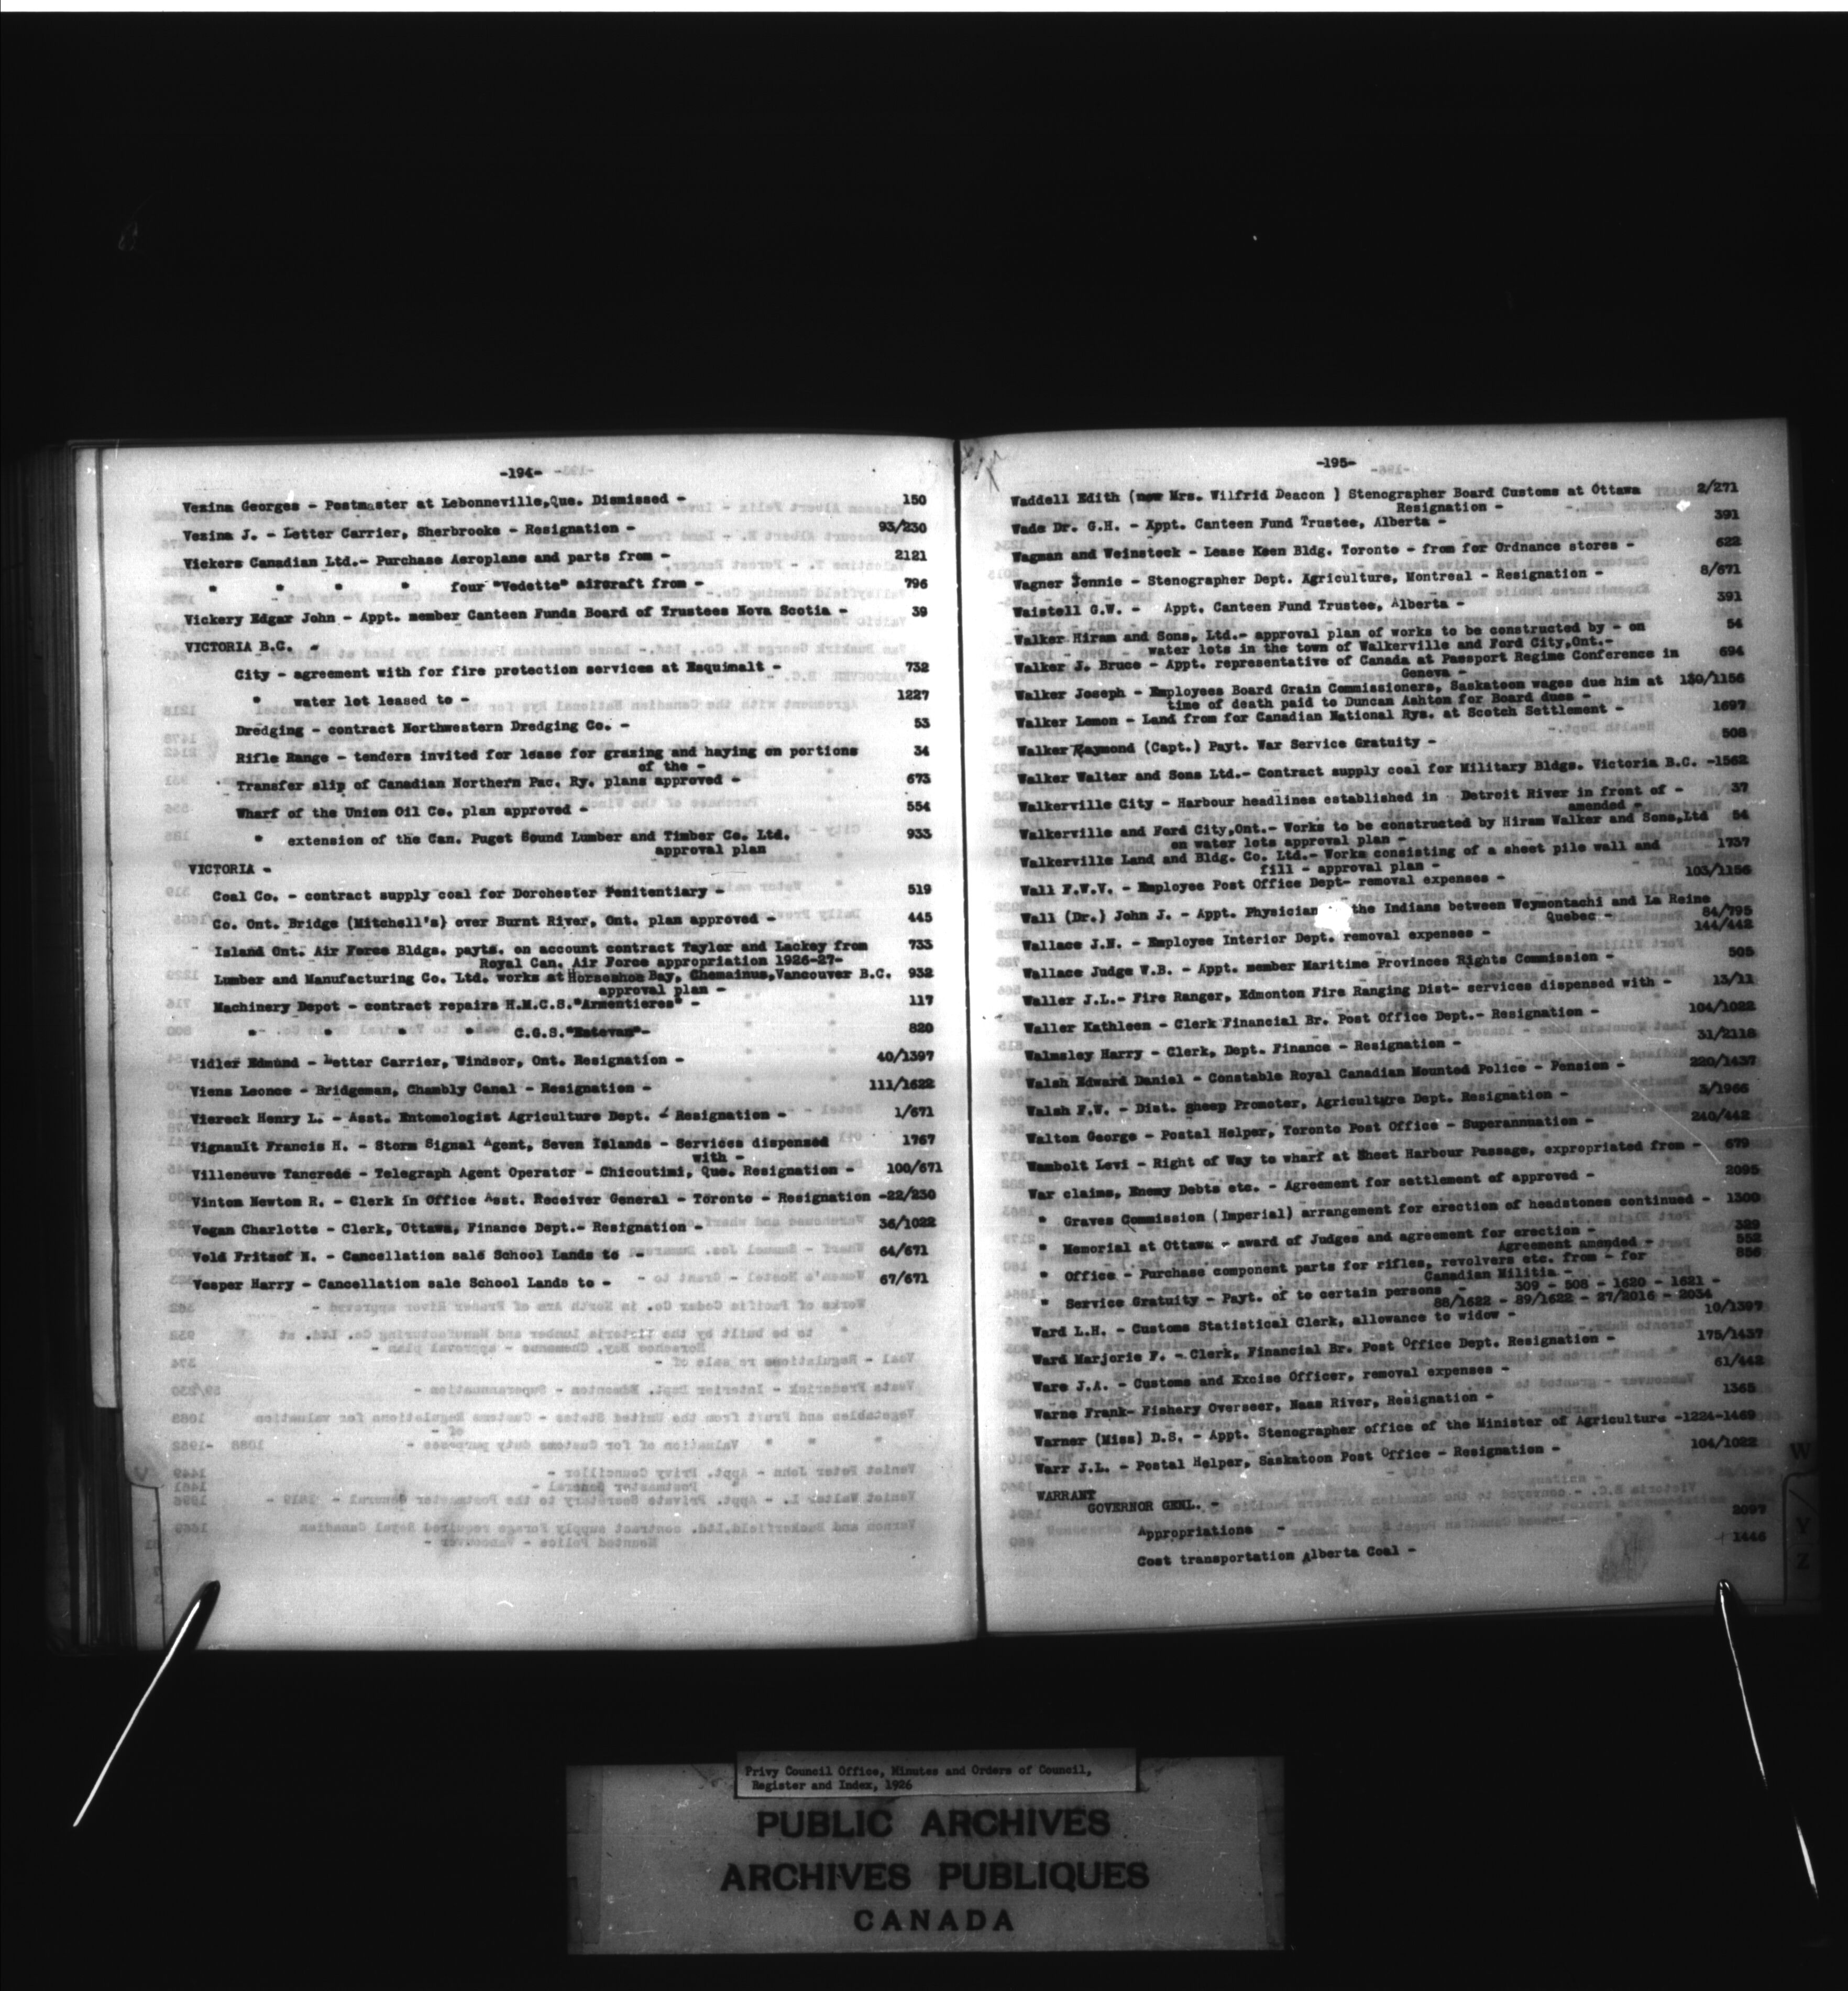 -194-
Vezina Georges - Postmaster at Lebonneville,Que. Dismissed - 150
Vezina J. - Letter Carrier, Sherbrooke - Resignation - 93/230
Vickers Canadian Ltd.- Purchase Aeroplane and parts from - 2121
" " " four "Vedette" aircraft from - 796
Vickery Edgar John - Appt. member Canteen Funds Board of Trustees Nova Scotia - 39
VICTORIA B.C. -
City - agreement with for fire protection services at Esquimalt - 732
" water lot leased to - 1227
Dredging - contract Northwestern Dredging Co. - 53
Rifle Range - tenders invited for lease for grazing and haying on portions 34
of the -
Transfer slip of Canadian Northern Pac. Ry. plans approved - 673
Wharf of the Union Oil Co. plan approved - 554
" extension of the Can. Puget Sound Lumber and Timber Co. Ltd. 933
approval plan
VICTORIA -
Coal Co. - contract supply coal for Dorchester Penitentiary - 519
Co. Ont. Bridge (Mitchell's) over Burnt River, Ont. plan approved - 445
Island Ont. Air Force Bldgs. payts. on account contract Taylor and Lackey from 733
Royal Can. Air Force appropriation 1926-27-
Lumber and Manufacturing Co. Ltd. works at Horseshoe Bay, Chemainus,Vancouver B.C. 932
approval plan -
Machinery Depot - contract repairs H.M.C.S."Armentieres" - 117
" " " " C.G.S."Estevan"- 820
Vidler Edmund - Letter Carrier, Windsor, Ont. Resignation - 40/1397
Viens Leonce - Bridgeman, Chambly Canal - Resignation - 111/1622
Viereck Henry L. - Asst. Entomologist Agriculture Dept. - Resignation - 1/671
Vignault Francis H. - Storm Signal Agent, Seven Islands - Services dispensed 1767
with -
Villeneuve Tancrede - Telegraph Agent Operator - Chicoutimi, Que. Resignation - 100/671
Vinton Newton R. - Clerk in Office Asst. Receiver General - Toronto - Resignation -22/230
Vogan Charlotte - Clerk, Ottawa, Finance Dept.- Resignation - 36/1022
Vold Fritzof N. - Cancellation sale School Lands to - 64/671
Vosper Harry - Cancellation sale School Lands to - 67/671
-195-
Waddell Edith (now Mrs. Wilfrid Deacon ) Stenographer Board Customs at Ottawa 2/271
Resignation -
Wade Dr. G.H. - Appt. Canteen Fund Trustee, Alberta - 391
Wagman and Weinsteck - Lease Keen Bldg. Toronto - from for Ordnance stores - 622
Wagner Jennie - Stenographer Dept. Agriculture, Montreal - Resignation - 8/671
Waistell G.W. - Appt. Canteen Fund Trustee, Alberta - 391
Walker Hiram and Sons, Ltd.- approval plan of works to be constructed by - on 54
water lots in the town of Walkerville and Ford City,Ont.-
Walker J. Bruce - Appt. representative of Canada at Passport Regime Conference in 694
Geneva -
Walker Joseph - Employees Board Grain Commissioners, Saskatoon wages due him at 130/1156
time of death paid to Duncan Ashton for Board dues -
Walker Lemon - Land from for Canadian National Rys. at Scotch Settlement - 1697
Walker Raymond (Capt.) Payt. War Service Gratuity - 508
Walker Walter and Sons Ltd.- Contract supply coal for Military Bldgs. Victoria B.C. -1562
Walkerville City - Harbour headlines established in Detroit River in front of - 37
amended -
Walkerville and Ford City,Ont.- Works to be constructed by Hiram Walker and Sons,Ltd 54
on water lots approval plan -
Walkerville Land and Bldg. Co. Ltd.- Works consisting of a sheet pile wall and 1737
fill - approval plan -
Wall F.W.V. - Employee Post Office Dept- removal expenses - 103/1156
Wall (Dr.) John J. - Appt. Physician the Indians between Weymontachi and La Reine
Quebec - 84/795
Wallace J.N. - Employee Interior Dept. removal expenses - 144/442
Wallace Judge W.B. - Appt. member Maritime Provinces Rights Commission - 505
Waller J.L.- Fire Ranger, Edmonton Fire Ranging Dist- services dispensed with - 13/11
Waller Kathleen - Clerk Financial Br. Post Office Dept.- Resignation - 104/1022
Walmsley Harry - Clerk, Dept. Finance - Resignation - 31/2118
Walsh Edward Daniel - Constable Royal Canadian Mounted Police - Pension - 220/1437
Walsh F.W. - Dist. Sheep Promoter, Agriculture Dept. Resignation - 3/1966
Walton George - Postal Helper, Toronto Post Office - Superannuation - 240/442
Wambolt Levi - Right of Way to wharf at Sheet Harbour Passage, expropriated from - 679
War claims, Enemy Debts etc. - Agreement for settlement of approved - 2095
" Graves Commission (Imperial) arrangement for erection of headstones continued - 1300
" Memorial at Ottawa - award of Judges and agreement for erection - 329
Agreement amended - 552
" Office - Purchase component parts for rifles, revolvers etc. from - for 856
Canadian Militia -
" Service Gratuity - Payt. of to certain persons - 309 - 508 - 1620 - 1621 -
88/1622 - 89/1622 - 27/2016 - 2034
Ward L.H. - Customs Statistical Clerk, allowance to widow - 10/1397
Ward Marjorie F. - Clerk, Financial Br. Post Office Dept. Resignation - 175/1437
Ware J.A. - Customs and Excise Officer, removal expenses - 61/442
Warne Frank- Fishery Overseer, Naas River, Resignation - 1365
Warner (Miss) D.S. - Appt. Stenographer office of the Minister of Agriculture -1224-1469
Warr J.L. - Postal Helper, Saskatoon Post Office - Resignation - 104/1022
WARRANT
GOVERNOR GENL. -
Appropriations - 2097
Cost transportation Alberta Coal - 1446
W
Y
Z
Privy Council Office, Minutes and Orders of Council,
Register and Index, 1926
PUBLIC ARCHIVES
ARCHIVES PUBLIQUES
CANADA